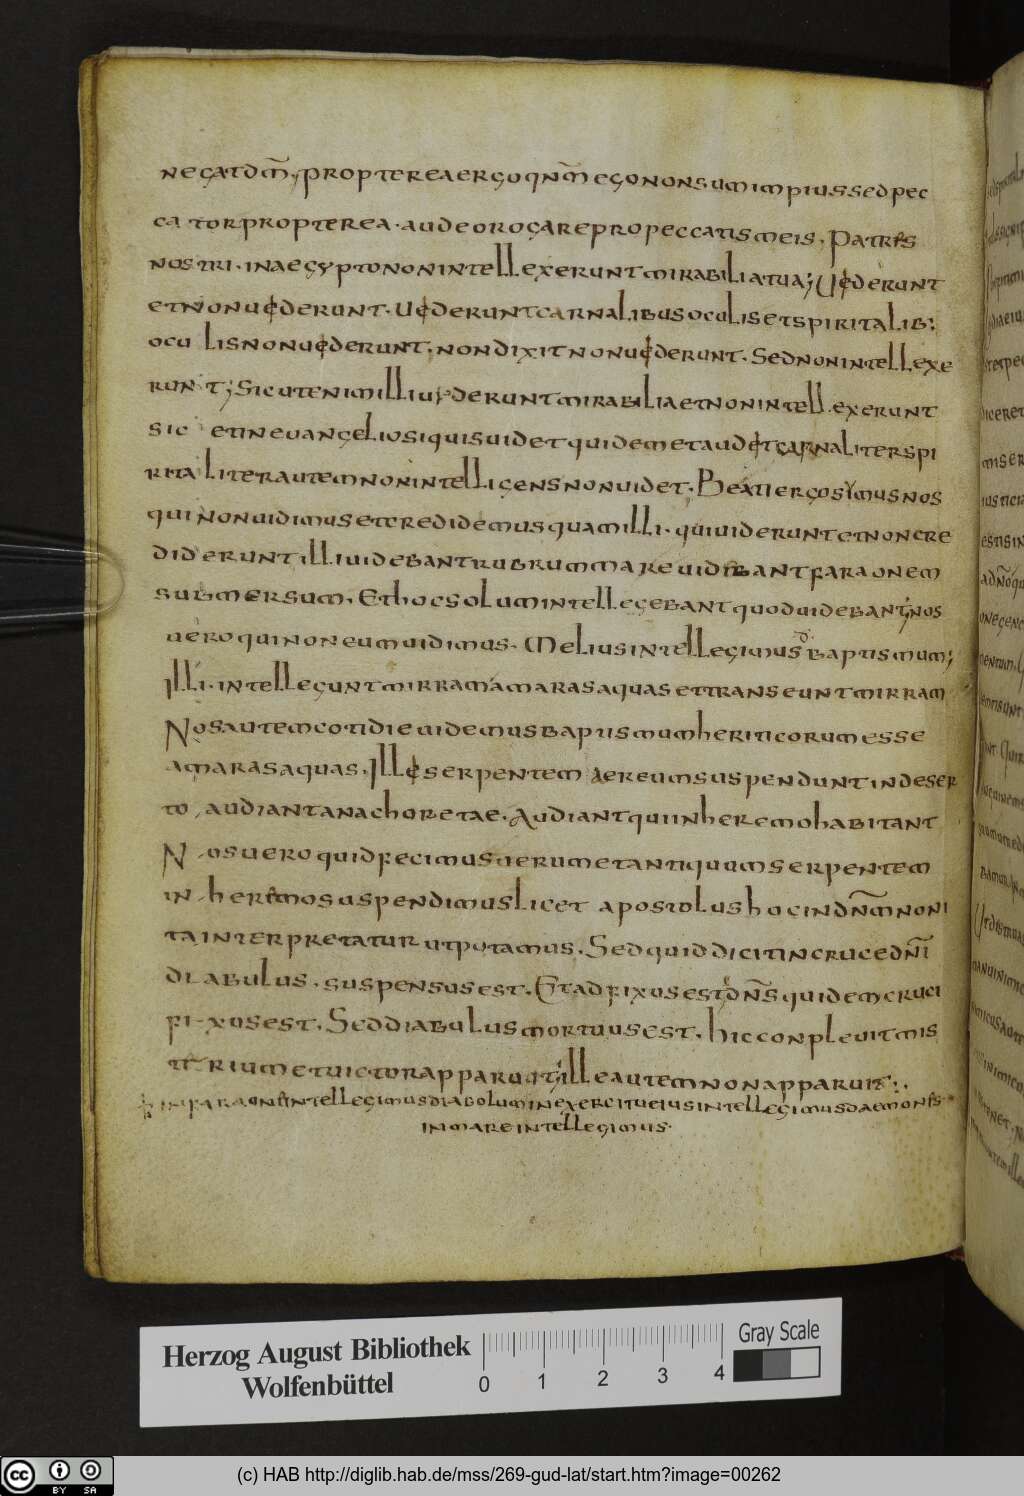 negat dm̄; propterea ergo qnm̄ ego non sum impius sed pec
cator propterea · audeo rogare pro peccatis meis. Patres
nostri · in aegypto non intellexerunt mirabilia tua; Uiderunt
et non uiderunt · uiderunt carnalibus oculis et spiritalib;
oculis non uiderunt. non dixit non uiderunt. Sed non intellexe
runt; sicut enim illi uiderunt mirabilia et non intellexerunt
sic et in euangelio siquis uidet quidem et audit carnaliter spi
ritaliter autem non intelligens non uidet. Beati ergo sumus nos
qui non uidimus et credidemus quam illi · qui uiderunt et non cre
diderunt illi uidebant rubrum mare uidebant faraonem
submersum. Et hoc solum intellegebant quod uidebant; nos
uero qui non eum uidimus. Melius intellegimus baptismum;
Illi · intellegunt mirram amaras aquas et transeunt mirram
Nos autem cotidie uidemus baptismum heriticorum esse
amaras aquas. Illi serpentem aereum suspendunt in deser
to audiant anachoretae. Audiant qui in heremo habitant
Nos uero quid fecimus uerum et antiquum serpentem
in heremo suspendimus licet apostolus hoc in dnm̄ non i
ta interpretatur ut putamus. Sed quid dicit in cruce dnī
diabulus · suspensus est. Et adfixus est dn̄s quidem cruci
fixus est. Sed diabulus mortuus est. hic conpleuit mis
terium et uictor apparuit; ille autem non apparuit :·
in faraone intellegimus diabolum in exercitu eius intellegimus daemones
in mare intellegimus ·
Herzog August Bibliothek
Wolfenbüttel
0 1 2 3 4
Gray Scale
cc BY SA
(c) HAB http://diglib.hab.de/mss/269-gud-lat/start.htm?image=00262